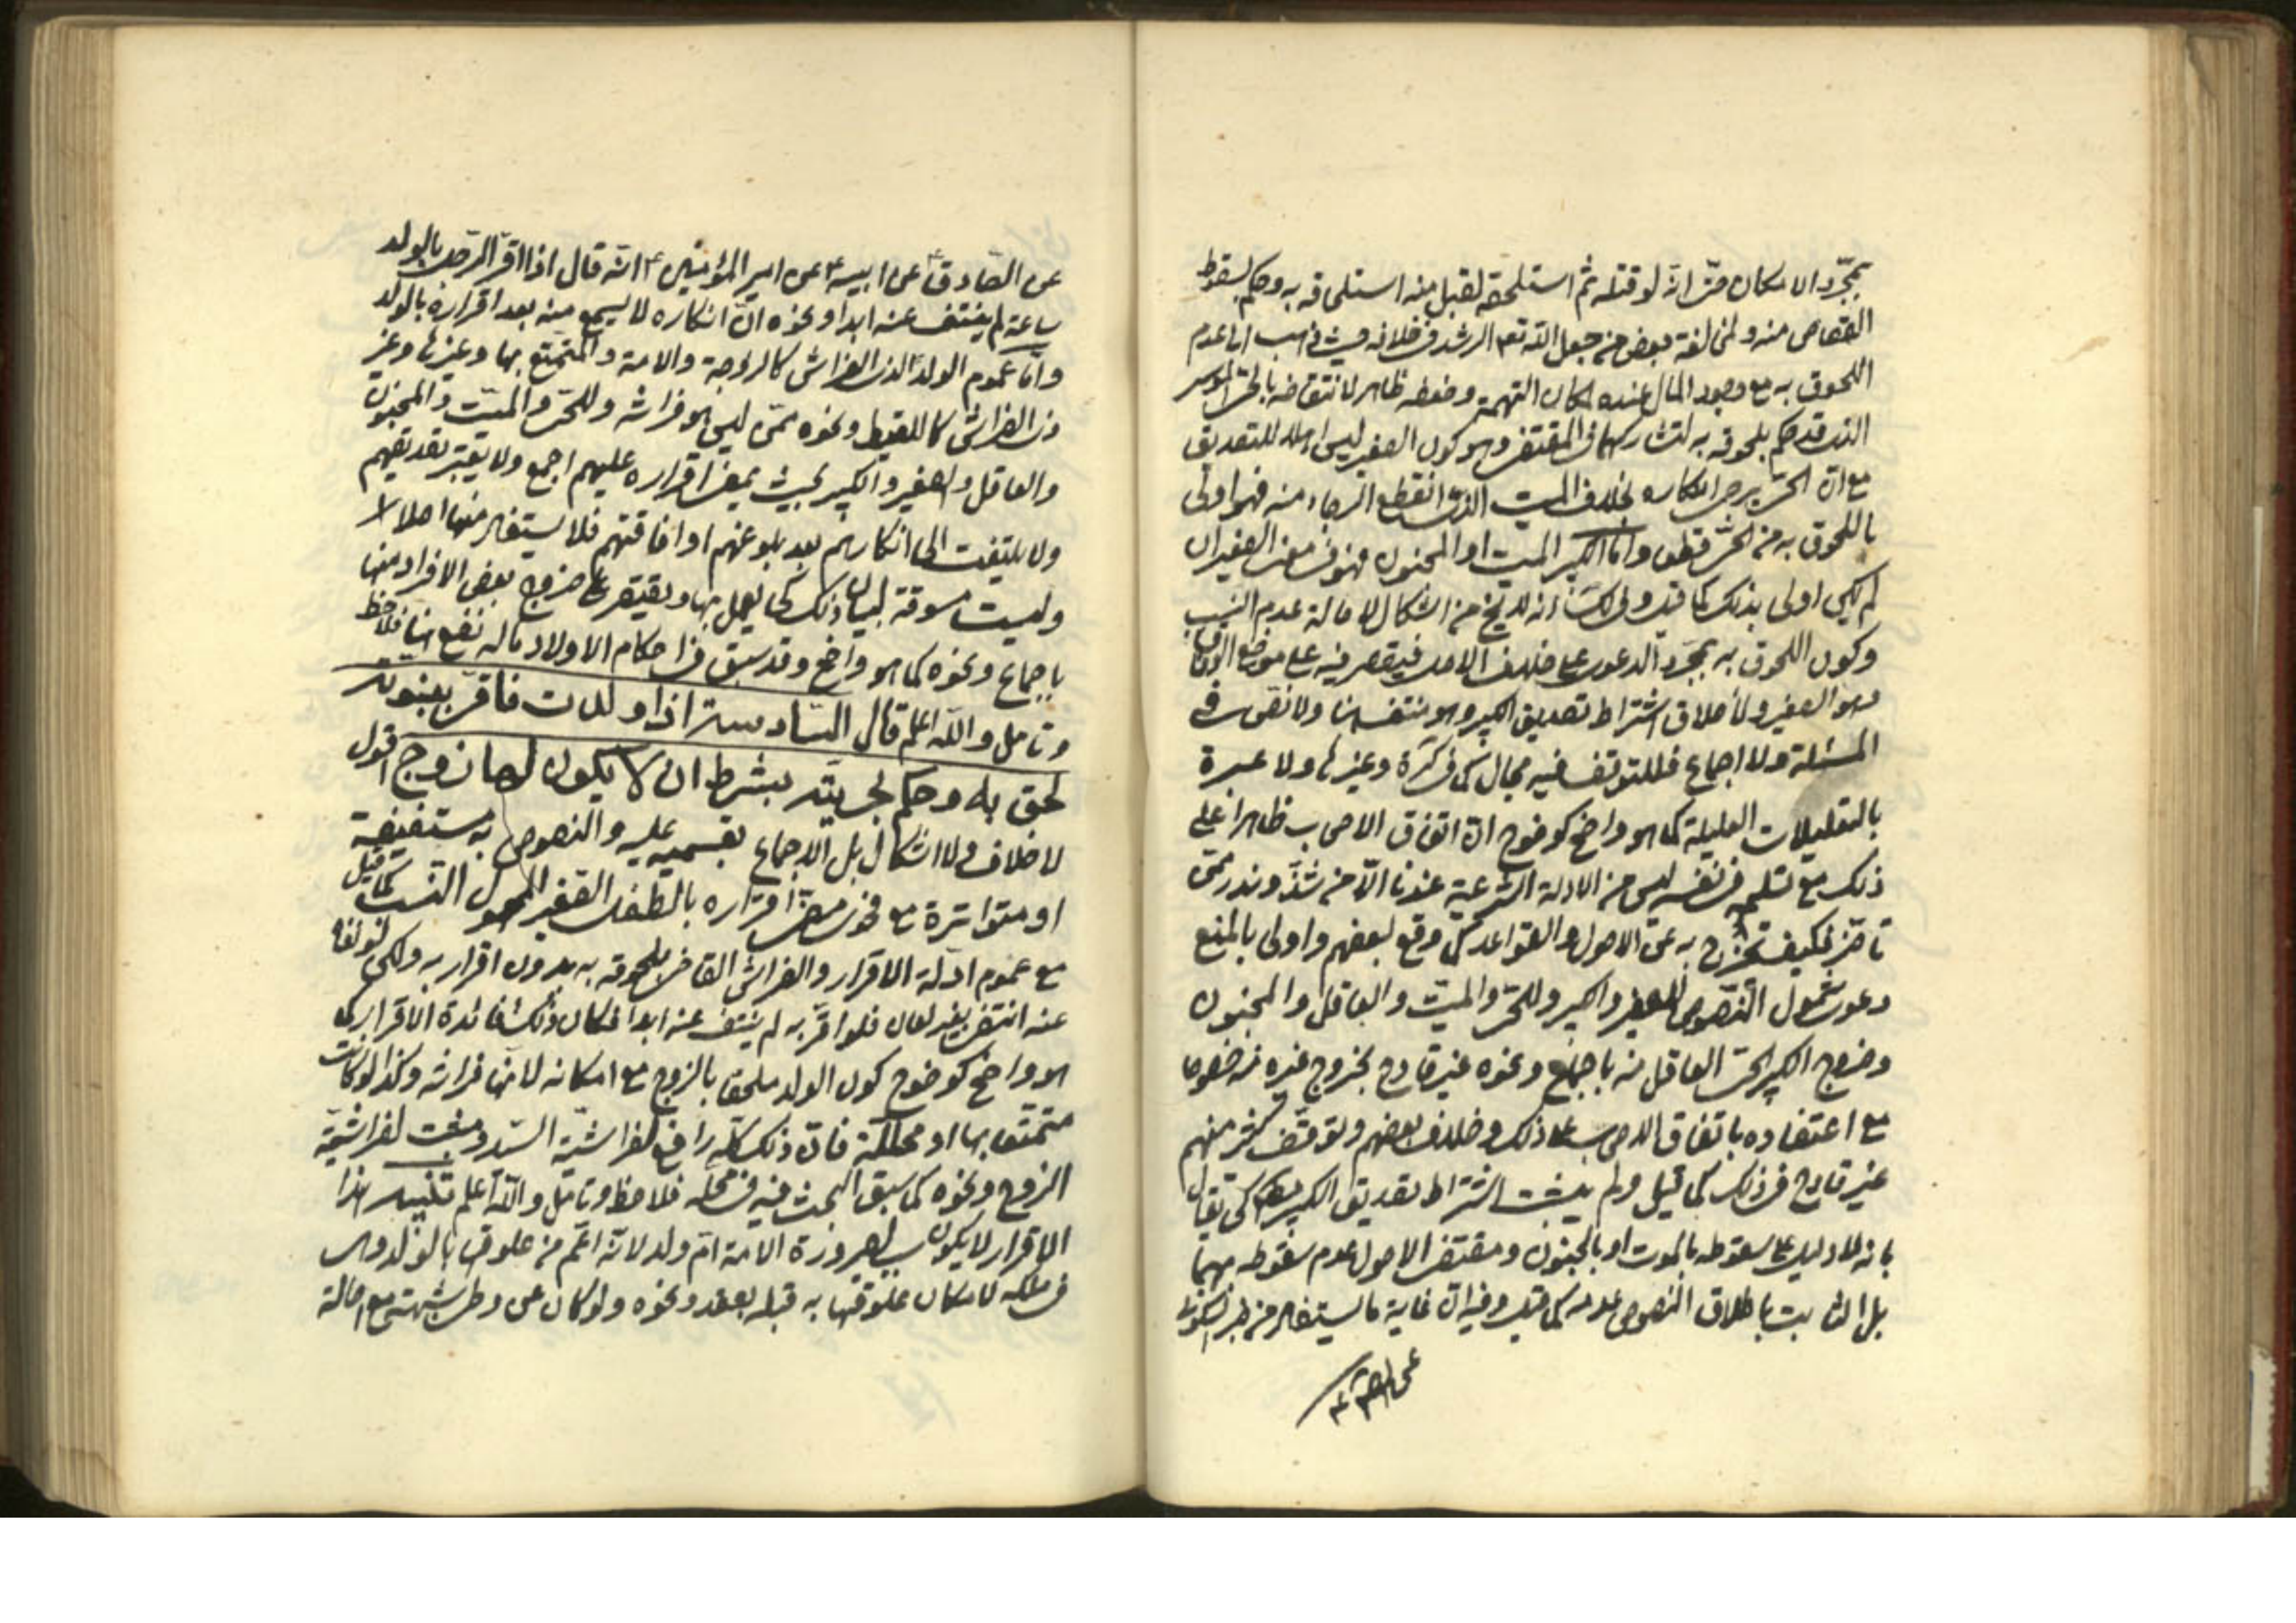 بمجرّد الامكان حتّى انّه لو قتله ثم استلحقه لقبل منه استلحاقه به وحكم بسقوط
القصاص منه ولمخالفة بعض من جعل الله تعم الرشد في خلافه حيث ذهب الى عدم
اللحوق به مع وجود المال عنده لمكان التهمة وضعفه ظاهر لانتقاضه بالحىّ الموسر
الذى قد حكم بلحوقه به لتشاركهما في المقتضى وهو كون الصغير ليس اهلا للتصديق
مع انّ الحىّ يرجى انكاره بخلاف الميت الذى انقطع الرجاء منه فهو اولى
باللحوق به من الحىّ قطعا وامّا الكبير الميت او المجنون فهو في معنى الصغير ان
لم يكن اولى بذلك كما قيل ولكنّ انه لا يخ من اشكال لاصالة عدم النسب
وكون اللحوق به بمجرّد الدعوى على خلاف الاصل فيقتصر فيه على موضع الوفاق
وهو الصغير ولاطلاق اشتراط تصديق الكبير وهو منتف هنا ولا نصّ في
المسئلة ولا اجماع فللتوقف فيه مجال كما في كرة وغيرها ولا عبرة
بالتعليلات العليلة كما هو واضح كوضوح انّ اتفاق الاصحاب ظاهرا على
ذلك مع تسليمه في نفسه ليس من الادلة الشرعية عندنا الّا من شذّ وندر ممّن
تاخّر فكيف تخرج به عن الاصول والقواعد كما وقع لبعضهم واولى بالمنع
دعوى شمول النّصوص للصغير والكبير وللحىّ والميّت والعاقل والمجنون
وخروج الكبير الحىّ العاقل منه باجماع ونحوه غير قادح بخروج غيره منه خصوصا
مع اعتضاده باتفاق الاصحاب على ذلك وخلاف بعضهم وتوقّف كثير منهم
غير قادح في ذلك كما قيل ولم يثبت اشتراط تصديق الكبير كى يقال
بانه لا دليل على سقوطه بالموت او بالجنون ومقتضى الاصول عدم سقوطه بهما
بل الثابت باطلاق النصوص عدمه كما قيل وفيه انّ غاية ما يستفاد من خبر السكونى
عن الصّادق ع عن ابيه ع عن امير المؤمنين ع انّه قال اذا اقرّ الرّجل بالولد
ساعة لم ينتف عنه ابدا ونحوه انّ انكاره لا يسمع منه بعد اقراره بالولد
وامّا عموم الولد الذى الفراش كالزوجة والامة والمتمتّع بها وغيرها وغير
ذى الفراش كاللقيط ونحوه ممّن ليس هو فراشه وللحىّ والميّت والمجنون
والعاقل والصغير والكبير بحيث يمضى اقراره عليهم اجمع ولا يعتبر تصديقهم
ولا يلتفت الى انكارهم بعد بلوغهم او افاقتهم فلا يستفاد منها اصلا لا
وليست مسوقة لبيان ذلك كى يعمل بها ويقتصر على خروج بعض الافراد منها
باجماع ونحوه كما هو واضح وقد سبق في احكام الاولاد ماله نفع هنا فلاحظ
وتامل والله اعلم قال السّادسة اذا ولدت فاقرّ ببنوته
لحق به وحكم بحريته بشرط ان لا يكون لها زوج اقول
لا خلاف ولا اشكال بل الاجماع بقسميه عليه والنصوص به مستفيضة
او متواترة مع فرض مضىّ اقراره بالطفل الصّغير المجهول النّسب كما قيل
مع عموم ادلّة الاقرار والفراش القاضى بلحوقه به بدون اقرار به ولكن لو نفاه
عنه انتفى بغير لعان فلو اقرّ به لم ينتف عنه ابدا فكان ذلك فائدة الاقرار كما
هو واضح كوضوح كون الولد ملحقا بالزوج مع امكانه لانّها فراشه وكذا لو كانت
متمتعا بها او محلّلة فانّ ذلك كلّه رافع لفراشيّة السّيد ومثبت لفراشيّة
الزوج ونحوه كما سبق البحث فيه في محلّه فلاحظ وتامّل والله اعلم تنبيه هذا
الاقرار لا يكون سببا لصيرورة الامة امّ ولد لانّه اعمّ من علوقها بالولد وهى
في ملكه لامكان علوقها به قبله بعقد ونحوه ولو كان عن وطى شبهة مع اصالة